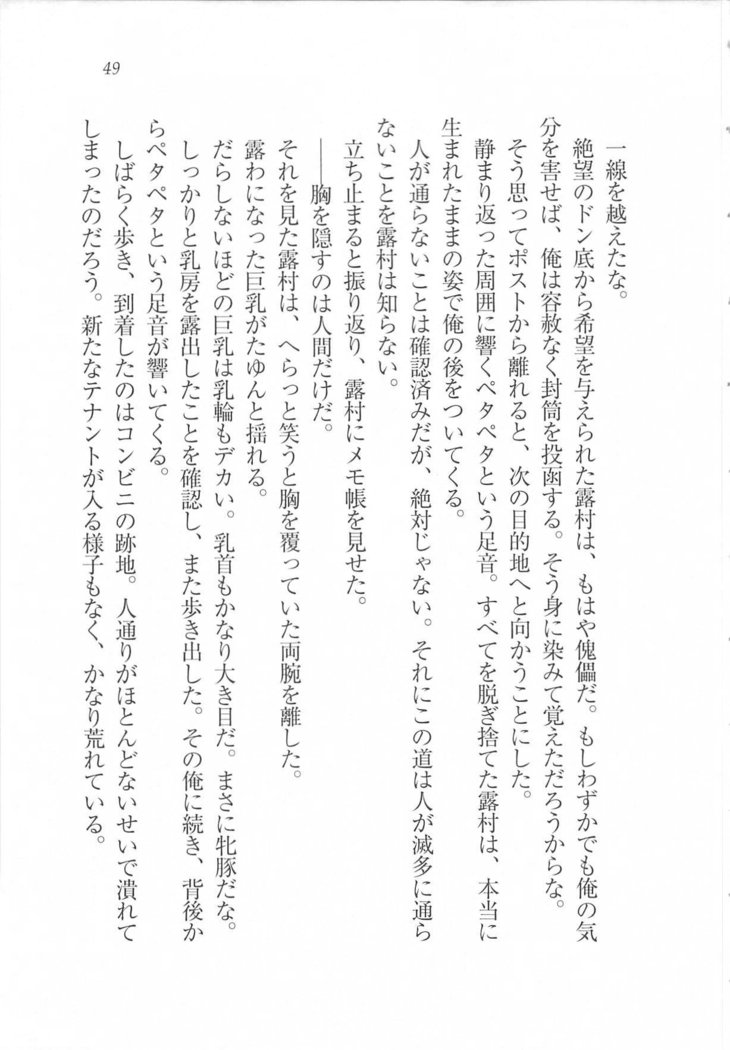 49
一線を越えたな。
絶望のドン底から希望を与えられた露村は、もはや傀儡だ。もしわずかでも俺の気
分を害せば、俺は容赦なく封筒を投函する。そう身に染みて覚えただろうからな。
そう思ってポストから離れると、次の目的地へと向かうことにした。
静まり返った周囲に響くペタペタという足音。すべてを脱ぎ捨てた露村は、本当に
生まれたままの姿で俺の後をついてくる。
人が通らないことは確認済みだが、絶対じゃない。それにこの道は人が滅多に通ら
ないことを露村は知らない。
立ち止まると振り返り、露村にメモ帳を見せた。
――胸を隠すのは人間だけだ。
それを見た露村は、へらっと笑うと胸を覆っていた両腕を離した。
露わになった巨乳がたゆんと揺れる。
だらしないほどの巨乳は乳輪もデカい。乳首もかなり大き目だ。まさに牝豚だな。
しっかりと乳房を露出したことを確認し、また歩き出した。その俺に続き、背後か
らペタペタという足音が響いてくる。
しばらく歩き、到着したのはコンビニの跡地。人通りがほとんどないせいで潰れて
しまったのだろう。新たなテナントが入る様子もなく、かなり荒れている。